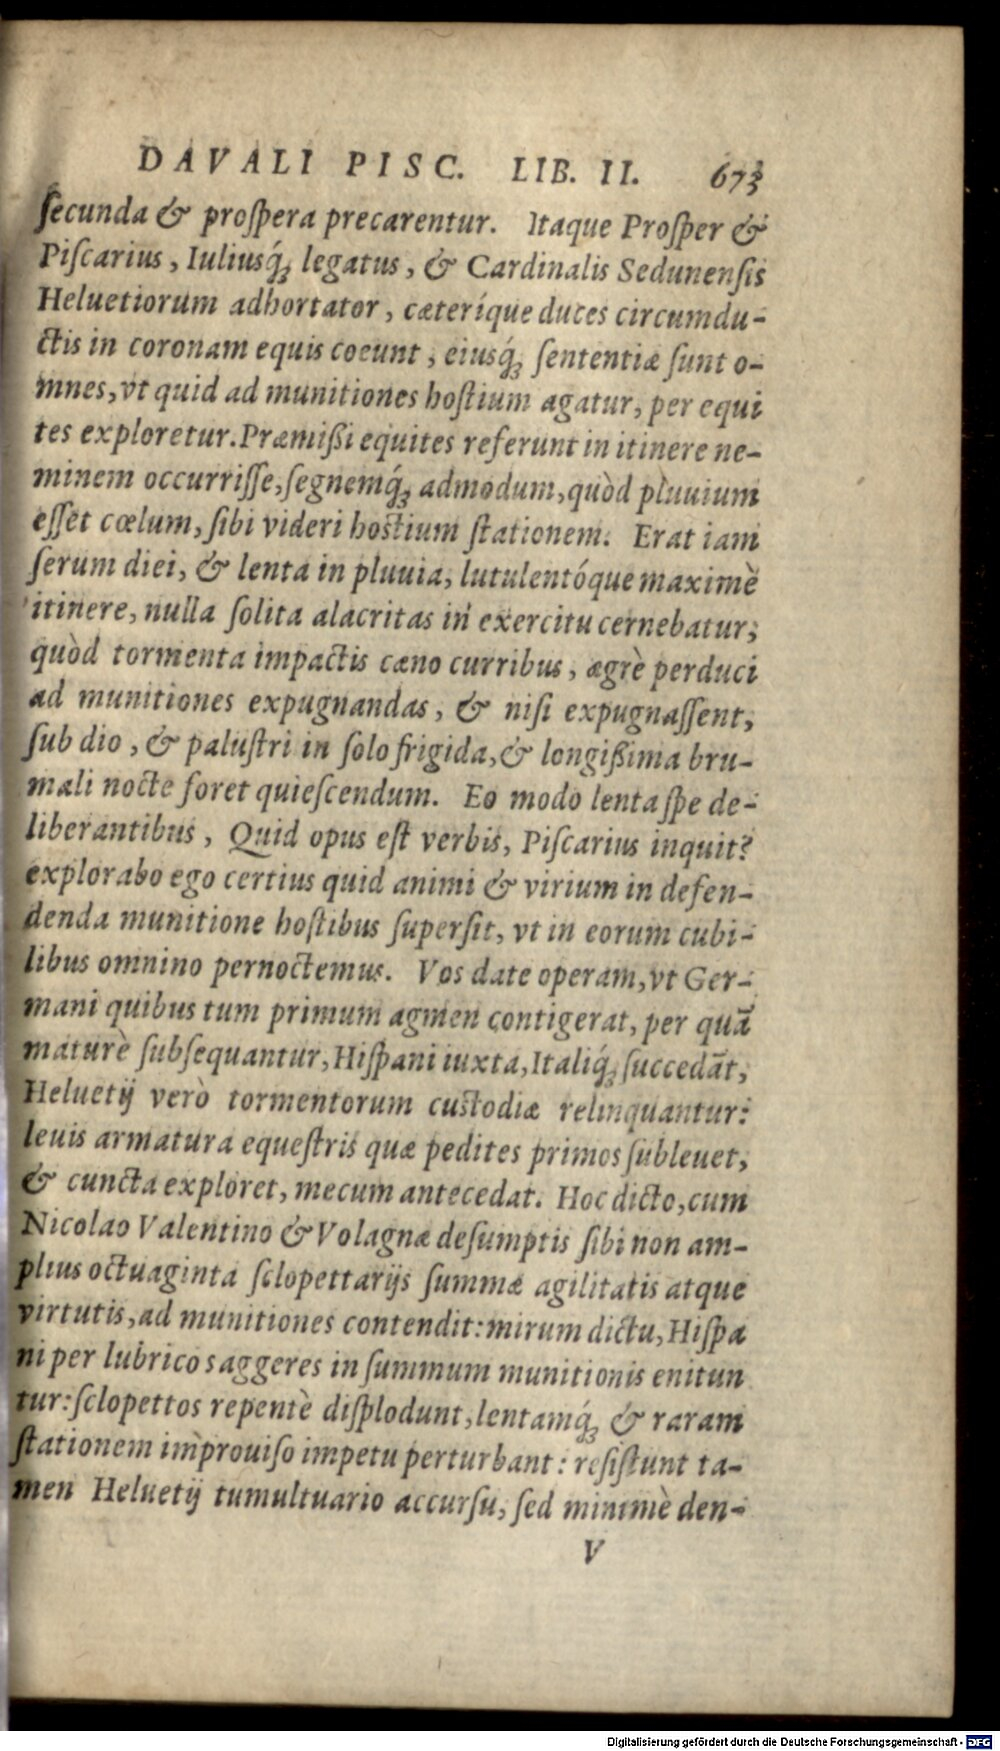 DAVALI PISC. LIB. II. 673
ſecunda & proſpera precarentur. Itaque Proſper &
Piſcarius, Iuliusq́ꝫ legatus, & Cardinalis Sedunenſis
Heluetiorum adhortator, cæteríque duces circumdu-
ctis in coronam equis coeunt, eiusq́ꝫ ſententiæ ſunt o-
mnes, vt quid ad munitiones hoſtium agatur, per equi
tes exploretur. Præmißi equites referunt in itinere ne-
minem occurriſſe, ſegnemq́ꝫ admodum, quòd pluuium
eſſet cœlum, ſibi videri hoſtium ſtationem. Erat iam
ſerum diei, & lenta in pluuia, lutulentóque maximè
itinere, nulla ſolita alacritas in exercitu cernebatur;
quòd tormenta impactis cæno curribus, ægrè perduci
ad munitiones expugnandas, & niſi expugnaſſent,
ſub dio, & paluſtri in ſolo frigida, & longißima bru-
mali nocte foret quieſcendum. Eo modo lenta ſpe de-
liberantibus, Quid opus eſt verbis, Piſcarius inquit?
explorabo ego certius quid animi & virium in defen-
denda munitione hoſtibus ſuperſit, vt in eorum cubi-
libus omnino pernoctemus. Vos date operam, vt Ger-
mani quibus tum primum agmen contigerat, per quā
maturè ſubſequantur, Hiſpani iuxta, Italiq́ꝫ ſuccedāt,
Heluetij verò tormentorum custodiæ relinquantur:
leuis armatura equeſtris quæ pedites primos ſubleuet,
& cuncta exploret, mecum antecedat. Hoc dicto, cum
Nicolao Valentino & Volagnæ deſumptis ſibi non am-
plius octuaginta ſclopettarijs ſummæ agilitatis atque
virtutis, ad munitiones contendit: mirum dictu, Hiſpa
ni per lubricos aggeres in ſummum munitionis enitun
tur: ſclopettos repentè diſplodunt, lentamq́ꝫ & raram
ſtationem improuiſo impetu perturbant: reſiſtunt ta-
men Heluetij tumultuario accurſu, ſed minimè den-
V
Digitalisierung gefördert durch die Deutsche Forschungsgemeinschaft - DFG